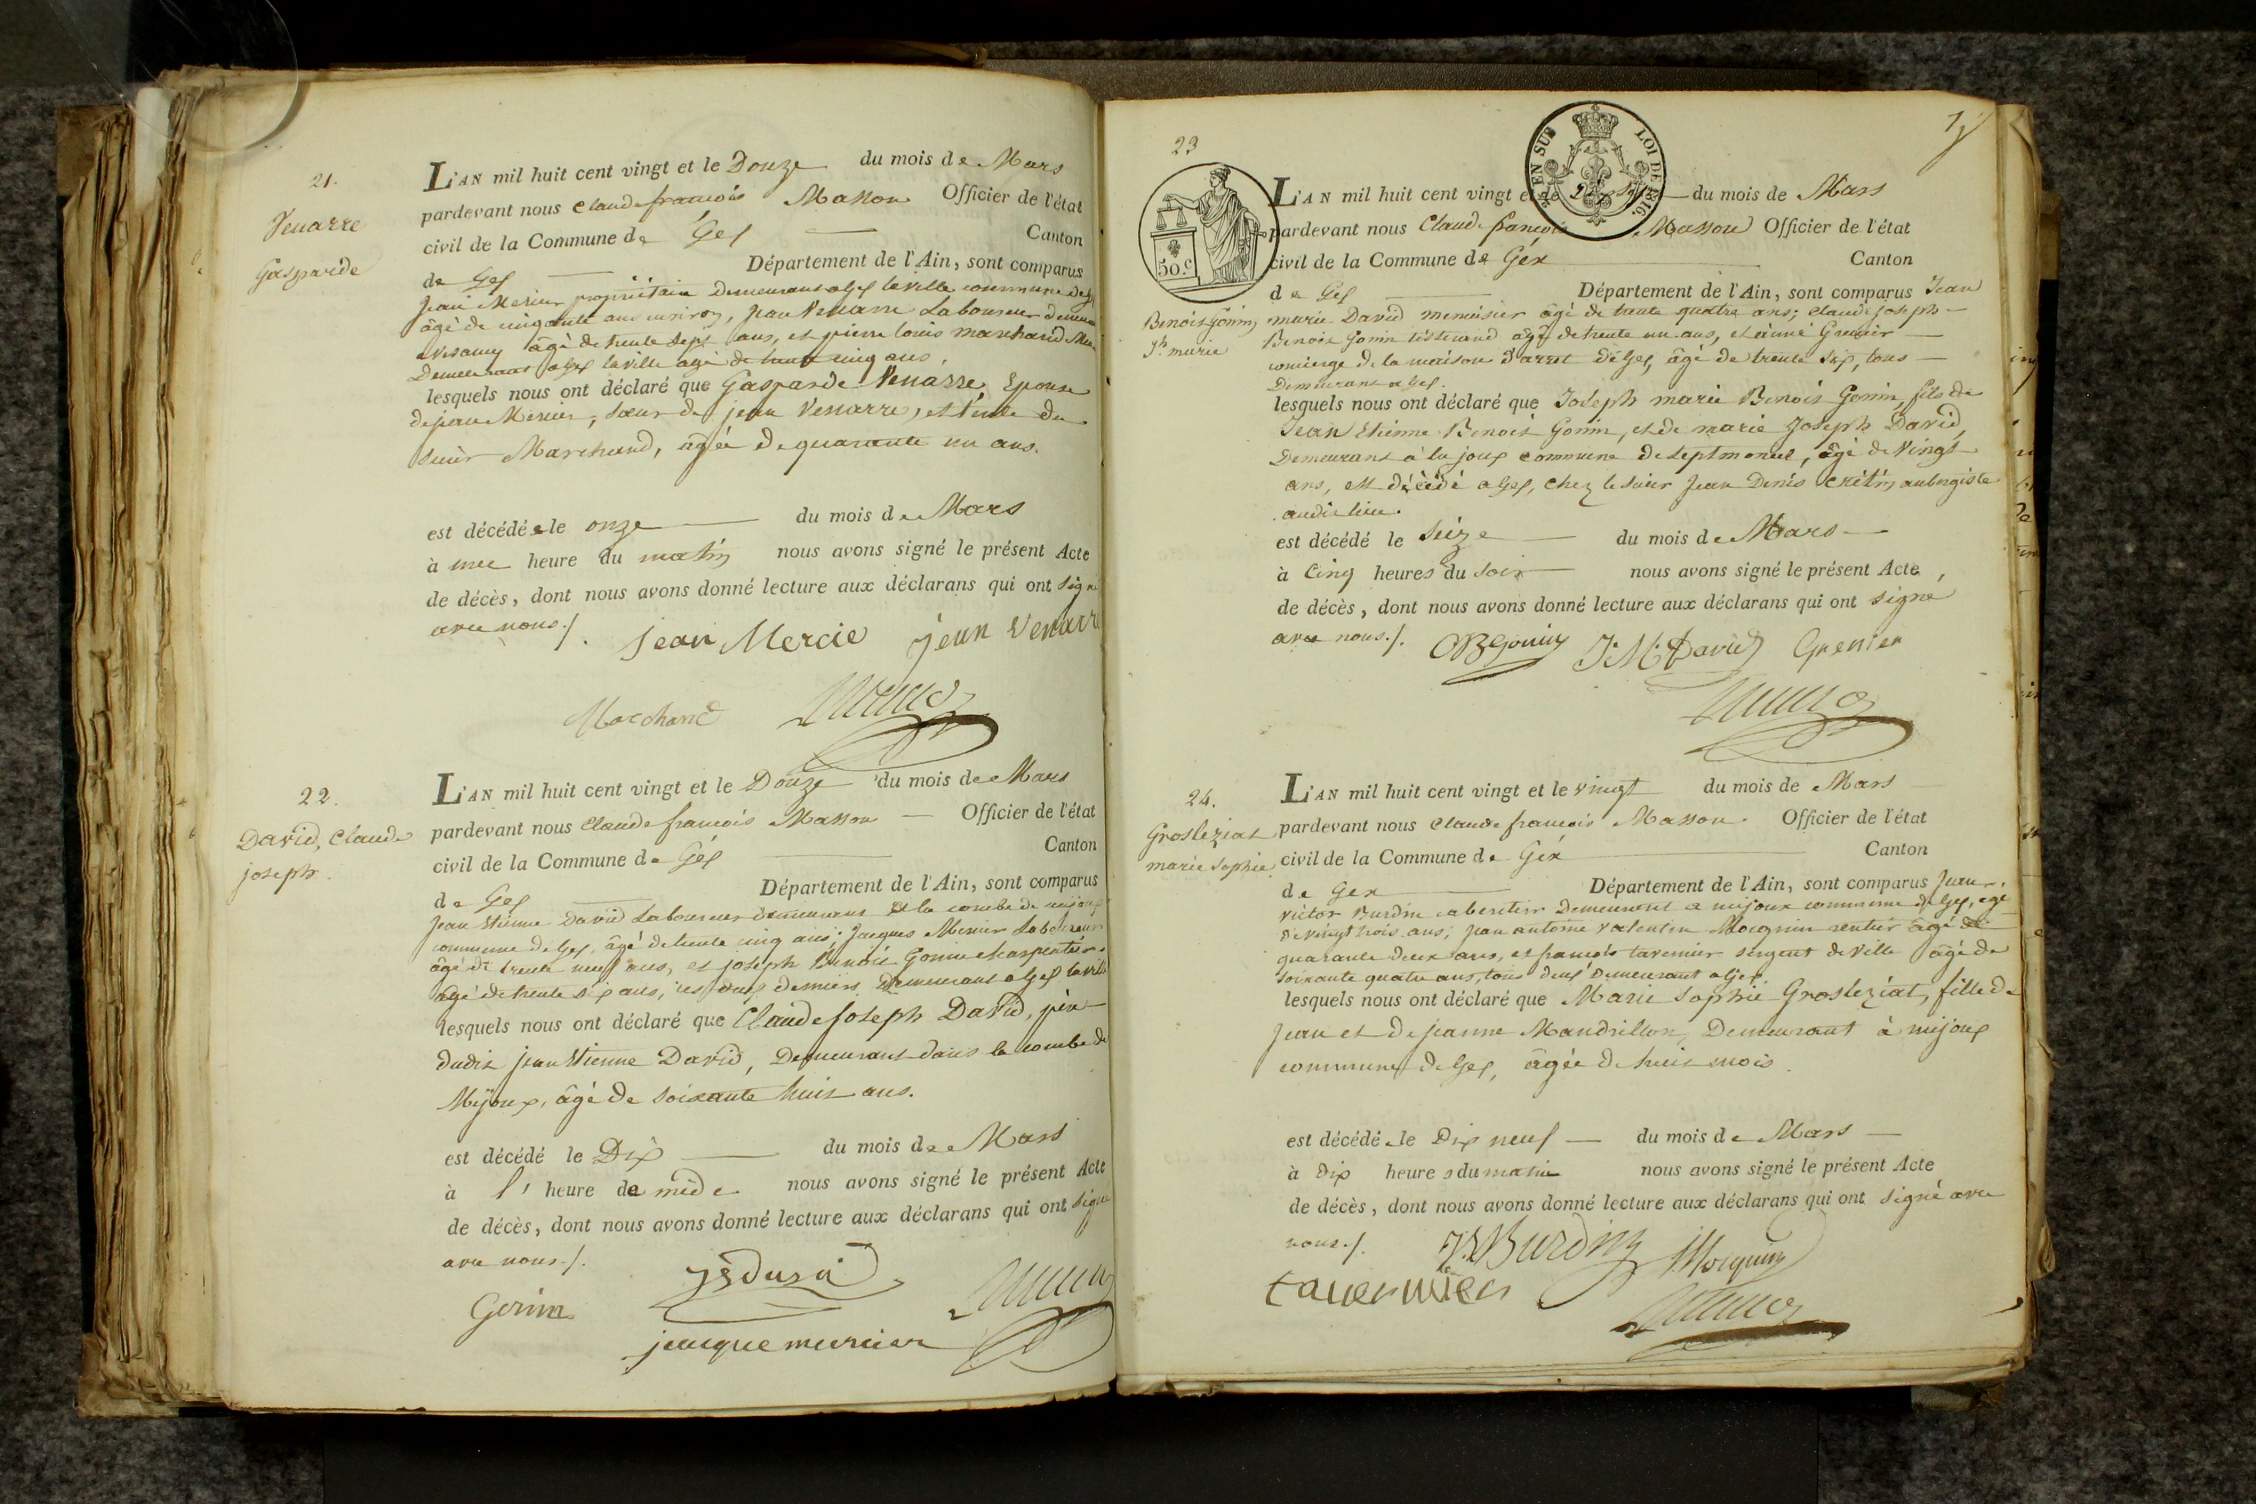 21.
Venarre
Gasparde
L'AN mil huit cent vingt et le Douze du mois de Mars
pardevant nous Claude françois Masson Officier de l'état
civil de la Commune de Gex Canton
de Gex Département de l'Ain, sont comparus
Jean Mercier propriétaire demeurant a Gex la ville commune de Gex
âgé de cinquante ans environ, Jean Venarre Laboureur
a Vesancy âgé de trente sept ans, et pierre louis marchand
Demeurant a Gex la ville agé de trente cinq ans.
lesquels nous ont déclaré que Gasparde Venarre, Epouse
de jean Mercier, soeur de jean Venarre, et tante du
sieur Marchand, âgée de quarante un ans.
est décédée le onze du mois de Mars
à une heure du matin nous avons signé le présent Acte
de décès, dont nous avons donné lecture aux déclarans qui ont signé
avec nous./.
jean Mercie jean Venarre
Marchand
22.
David, Claude
joseph.
L'AN mil huit cent vingt et le Douze du mois de Mars
pardevant nous Claude françois Masson Officier de l'état
civil de la Commune de Gex Canton
de Gex Département de l'Ain, sont comparus
Jean Etienne David Laboureur demeurant à la combe de mijoux
commune de Gex, âgé de trente cinq ans; Jacques Mercier Laboureur
âgé de trente neuf ans, et joseph Benoit Gonin charpentier
âgé de trente six ans, ces deux derniers Demeurant a Gex la ville
lesquels nous ont déclaré que Claude Joseph David, père
dudit jean Etienne David, Demeurant dans la combe de
Mijoux, âgé de soixante huit ans.
est décédé le Dix du mois de Mars
à l' heure de midi nous avons signé le présent Acte
de décès, dont nous avons donné lecture aux déclarans qui ont signé
avec nous./.
Gonin
jacque mercier
23
EN SUS LOI DE 1816.
50.c
Benoit Gonin,
Jh. marie
L'AN mil huit cent vingt et le du mois de Mars
pardevant nous Claude françois Masson Officier de l'état
civil de la Commune de Gex Canton
de Gex Département de l'Ain, sont comparus Jean
marie David menuisier âgé de trente quatre ans; claude joseph
Benoit Gonin tisserand âgé de trente un ans, et aimé Grenier
concierge de la maison d'arrêt de Gex, âgé de trente six, tous
Demeurant a Gex.
lesquels nous ont déclaré que Joseph marie Benoit Gonin, fils de
Jean Etienne Benoit Gonin, et de marie Joseph David,
Demeurans à lajoux commune de septmoncel, âgé de vingt
ans, est décédé a Gex, chez le sieur Jean Denis Crétin aubergiste
audit lieu.
est décédé le seize du mois de Mars
à Cinq heures du soir nous avons signé le présent Acte
de décès, dont nous avons donné lecture aux déclarans qui ont signé
avec nous./.
CJBGonin J. M. David Grenier
24.
Grosleziat
marie sophie
L'AN mil huit cent vingt et le vingt du mois de Mars
pardevant nous Claude françois Masson Officier de l'état
civil de la Commune de Gex Canton
de Gex Département de l'Ain, sont comparus Jean
Victor Burdin cabaretier Demeurant a mijoux commune de Gex, agé
de vingt trois ans; jean antoine valentin Mocquin rentier âgé de
quarante deux ans, et françois tavernier sergent de ville âgé de
soixante quatre ans, tous deux Demeurant a Gex.
lesquels nous ont déclaré que Marie Sophie Grosleziat, fille de
Jean et de jeanne Mandrillon, Demeurant à mijoux
commune de Gex, âgée de huit mois.
est décédée le Dix neuf du mois de Mars
à Dix heures du matin nous avons signé le présent Acte
de décès, dont nous avons donné lecture aux déclarans qui ont signé avec
nous./.
JVBurdin Mocquin
tavernier